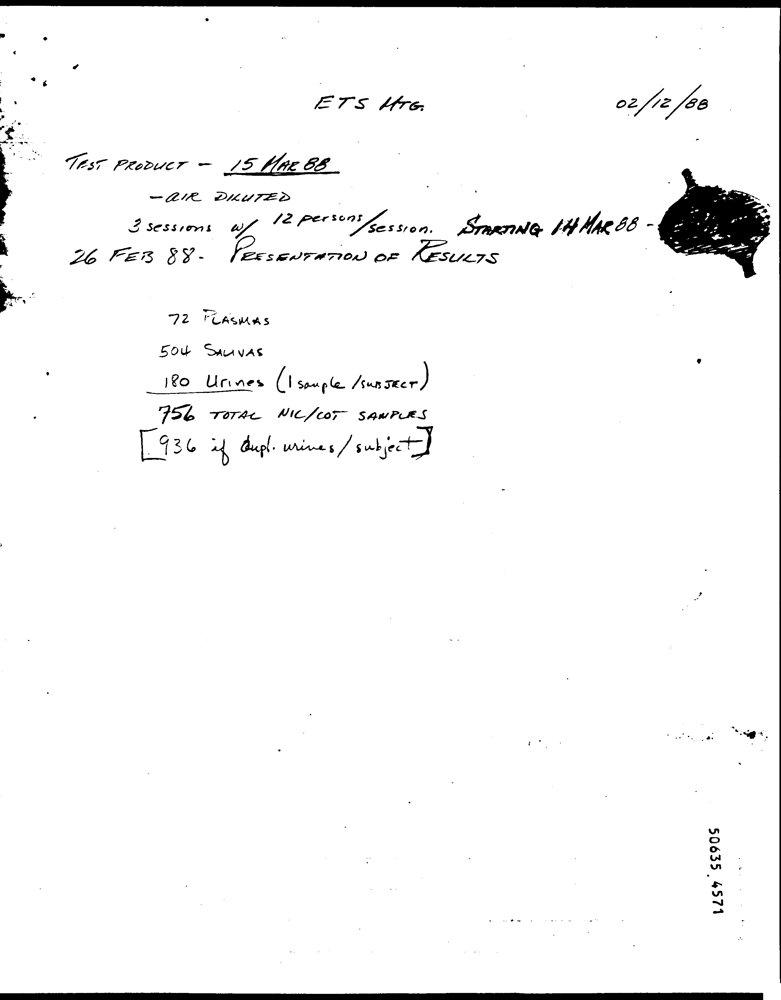 ETS MTG. 02/12/88
TEST PRODUCT - 15 MAR 88
- AIR DILUTED
3 sessions w/ 12 persons/session. STARTING 14 MAR 88 -
26 FEB 88 - PRESENTATION OF RESULTS
72 PLASMAS
504 SALIVAS
180 Urines (1 sample/SUBJECT)
756 TOTAL NIC/COT SAMPLES
[936 if dupl. urines/subject]
50635 4571